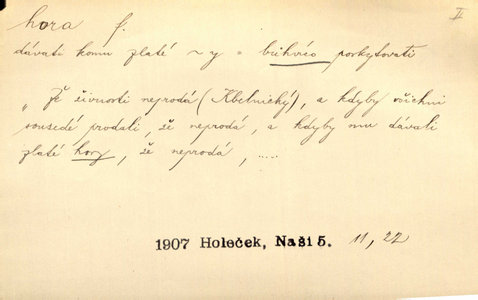 hora f. II
dávati komu zlaté ~y = bůhvíco poskytovati
„Že živnosti neprodá (Kbelnický), a kdyby všichni
sousedé prodali, že neprodá, a kdyby mu dávali
zlaté hory, že neprodá, ....
1907 Holeček, Naši 5. 11, 22